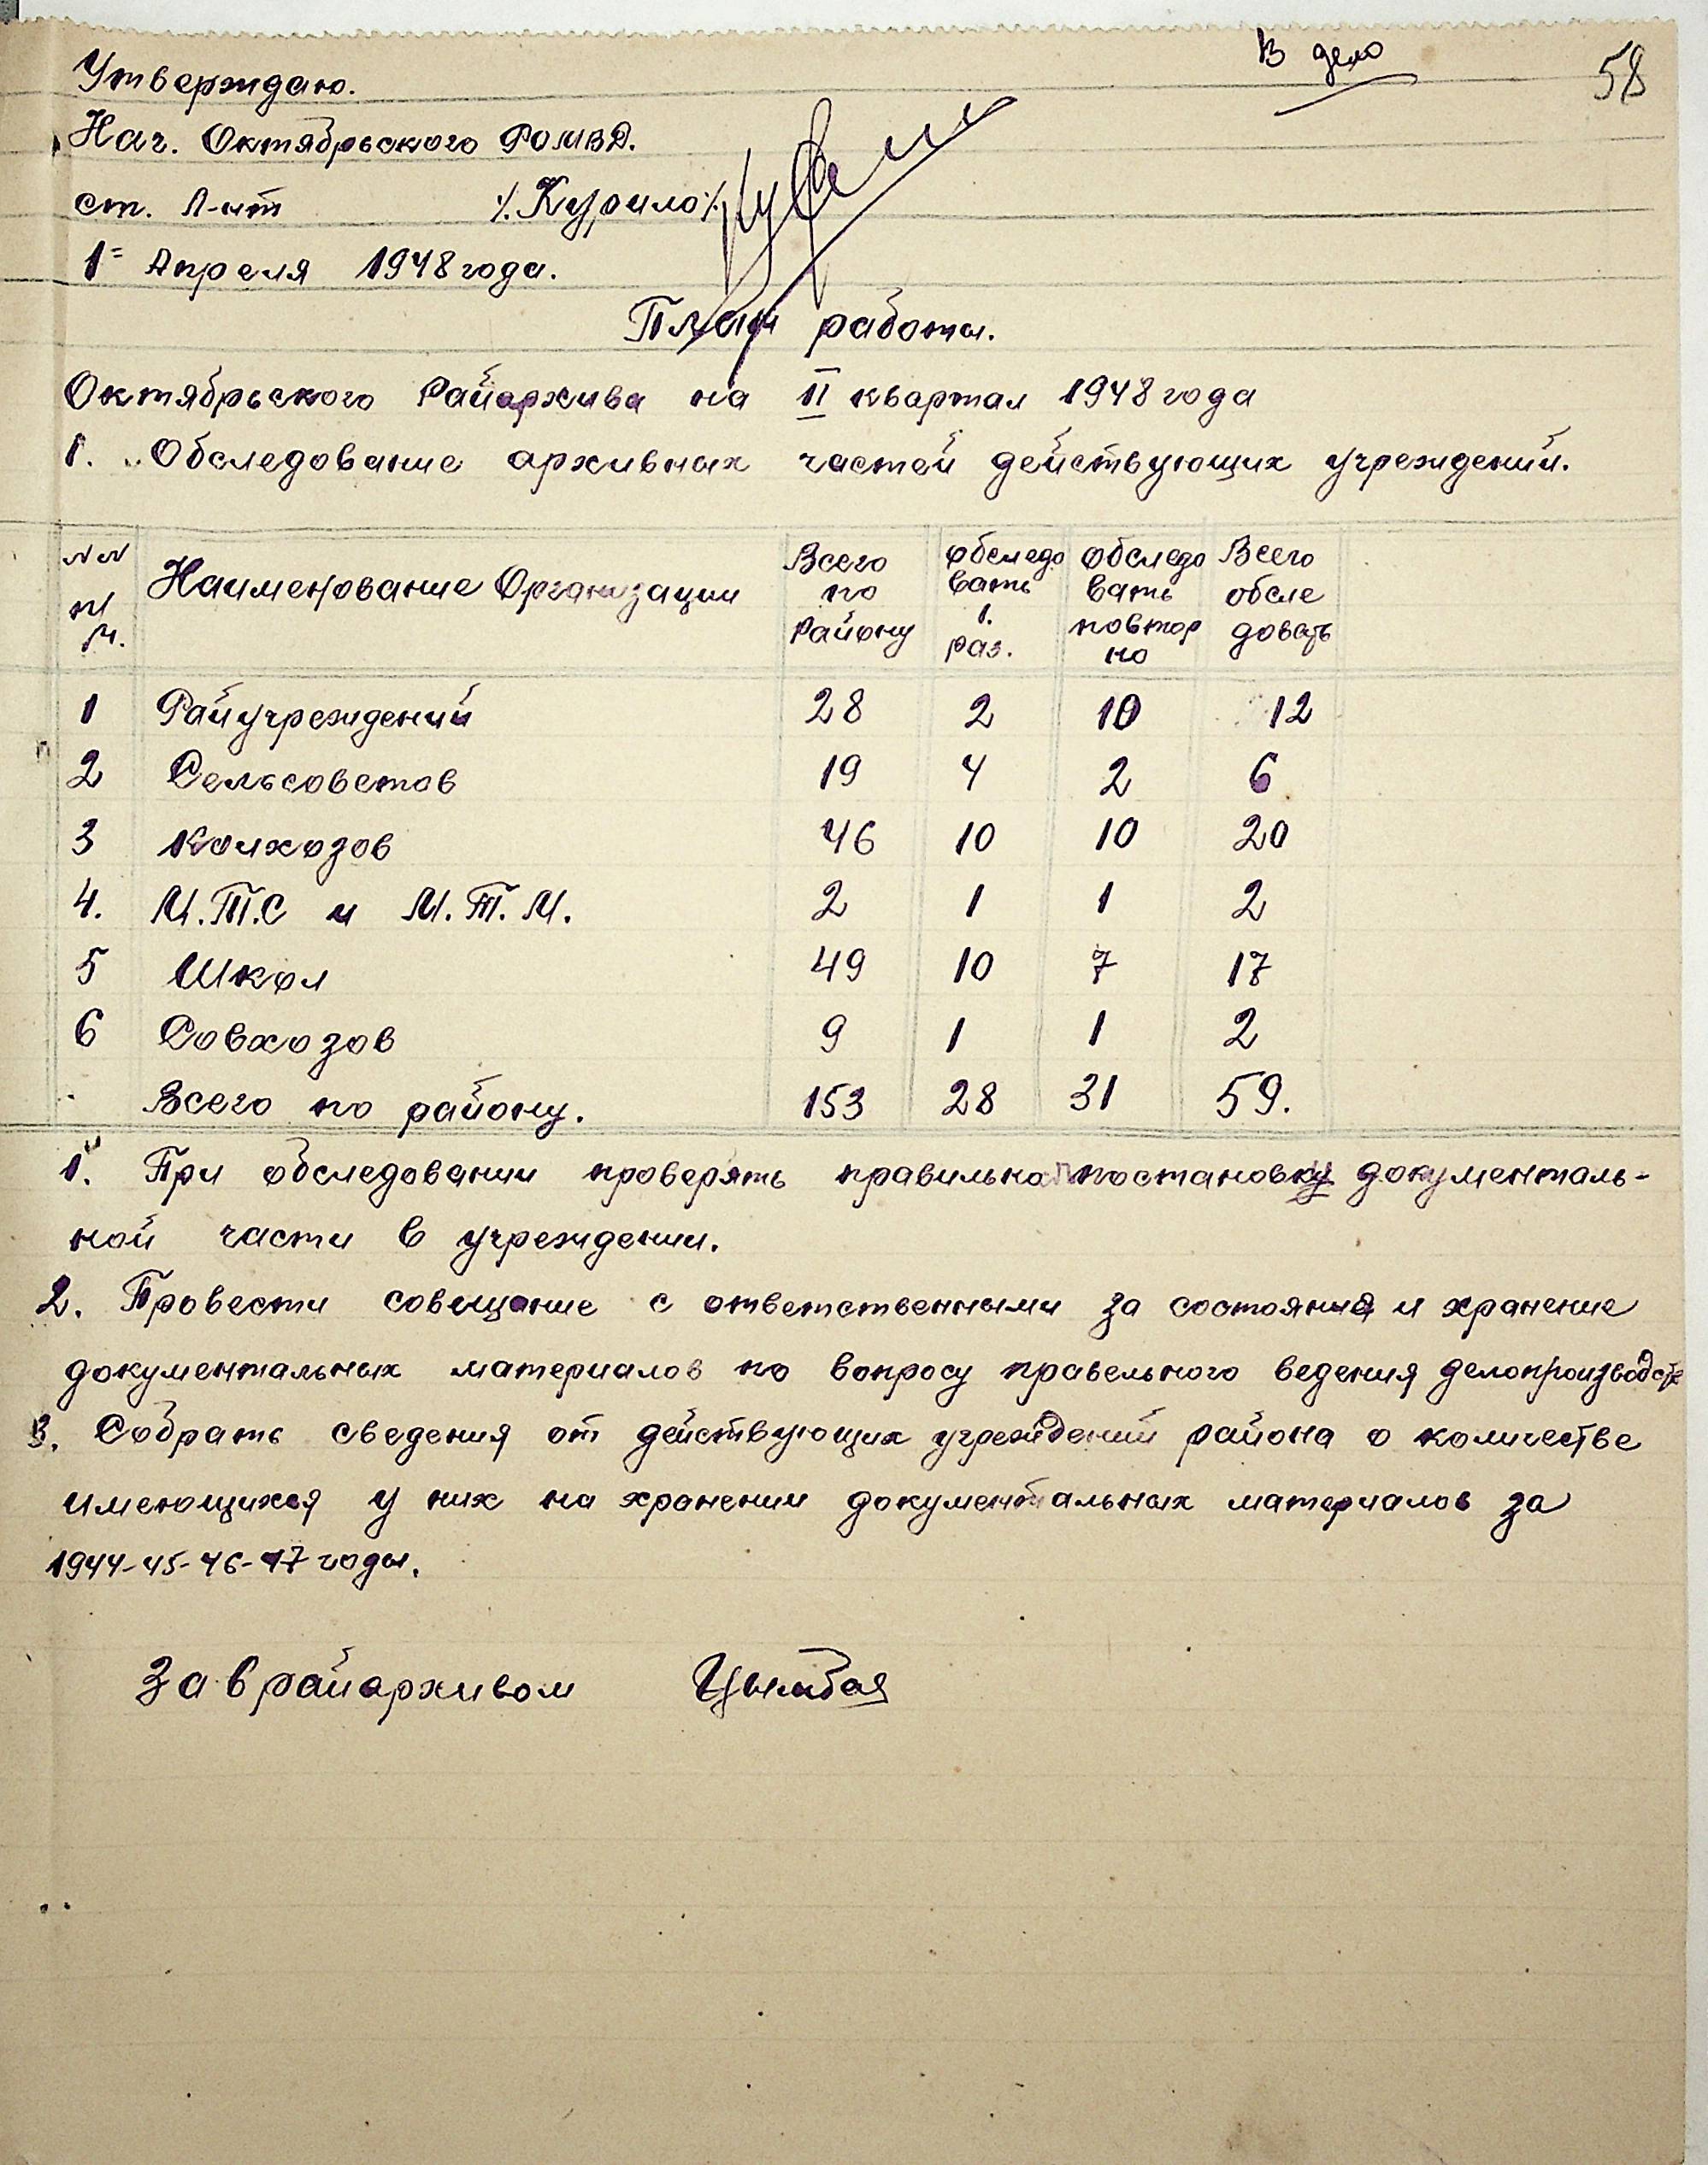 В дело
58
Утверждаю.
Нач. Октябрьского РОМВД.
ст. Л-нт ⁒Курило⁒
1= Апреля 1948 года.
План работы.
Октябрьского Райархива на II квартал 1948 года
1. Обследование архивных частей действующих учреждений.
NN п/п. Наименование Организации Всего по Району обследовать 1. раз. обследовать повторно Всего обследовать
1 Райучреждений 28 2 10 12
2 Сельсоветов 19 4 2 6
3 Колхозов 46 10 10 20
4. М.Т.С и М.Т.М. 2 1 1 2
5 Школ 49 10 7 17
6 Совхозов 9 1 1 2
Всего по району. 153 28 31 59.
1. При обследовании проверять правильно постановку документаль-
ной части в учреждении.
2. Провести совещание с ответственными за состояние и хранение
документальных материалов по вопросу правельного ведения делопроизводств
3. Собрать сведения от действующих учреждений района о количестве
имеющихся у них на хранении документальных материалов за
1944-45-46-47 годы.
Зав райархивом Цымбал